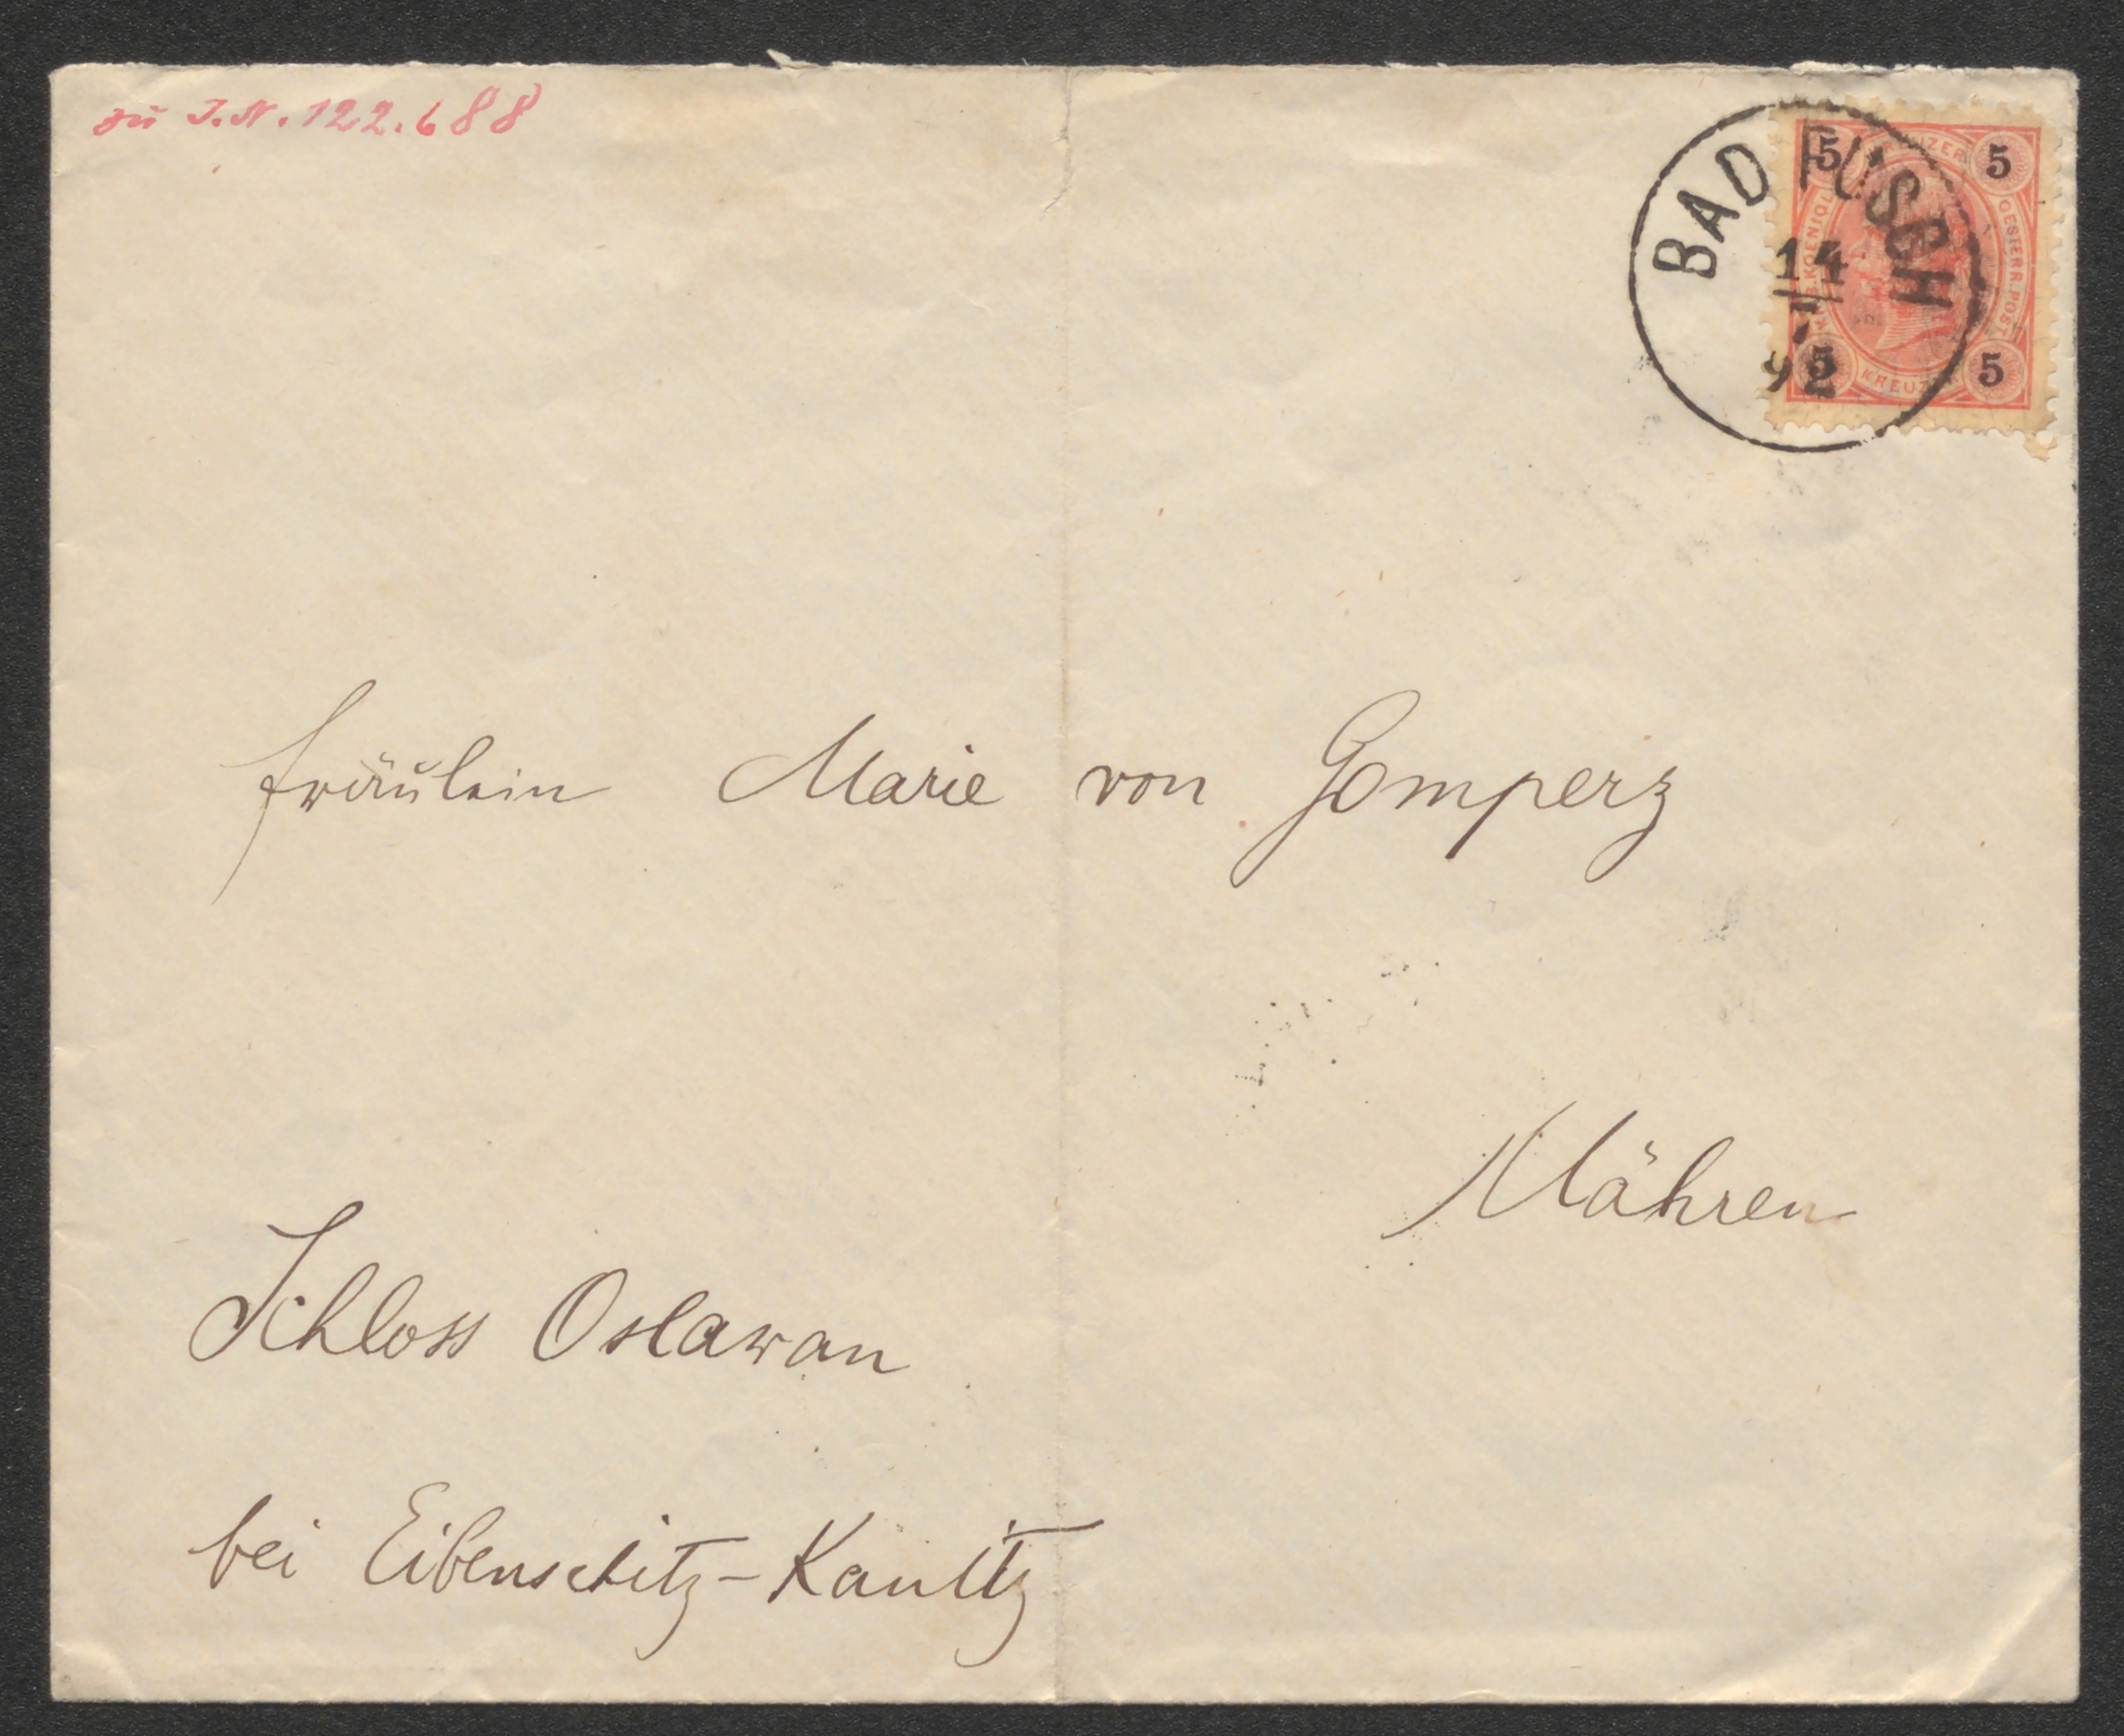 zu I.N. 122.688
BAD FUSCH
14
92
5 5
5 5
KREUZER
OESTERR. POST
Fräulein Marie von Gomperz
Mähren
Schloss Oslawan
bei Eibenschitz-Kanitz